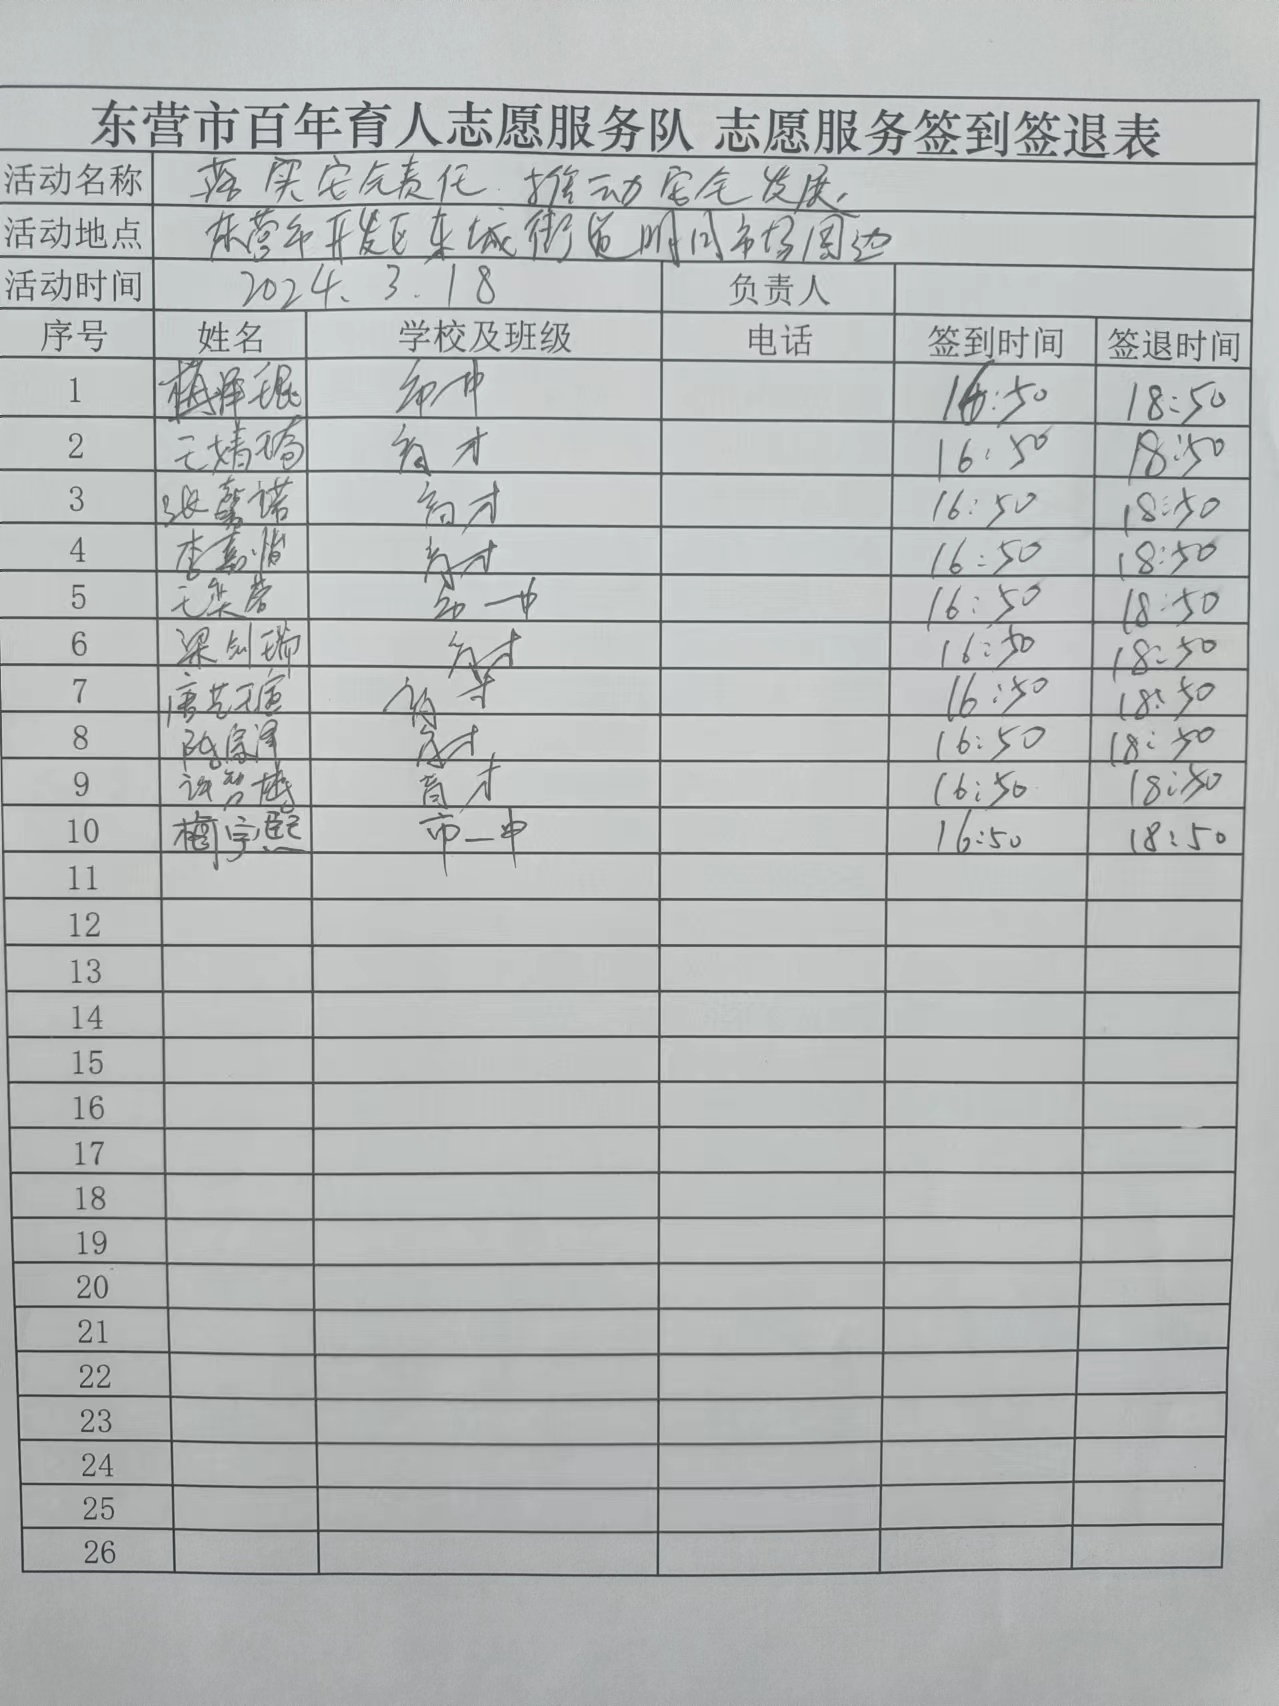 东营市百年育人志愿服务队 志愿服务签到签退表
活动名称 落实安全责任 推动安全发展
活动地点 东营市开发区东城街道明月市场周边
活动时间 2024.3.18 负责人
序号 姓名 学校及班级 电话 签到时间 签退时间
1 16:50 18:50
2 王婧琦 育才 16:50 18:50
3 张馨诺 育才 16:50 18:50
4 李嘉 育才 16:50 18:50
5 王奕 一中 16:50 18:50
6 梁剑瑞 育才 16:50 18:50
7 唐艺瑄 育才 16:50 18:50
8 泽 育才 16:50 18:50
9 许智越 育才 16:50 18:50
10 梅宇熙 市一中 16:50 18:50
11
12
13
14
15
16
17
18
19
20
21
22
23
24
25
26